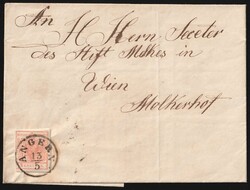 An
H Hern Secretär
des Stift Mölkes in
Wien
Mölkerhof
ANGERN
13
5